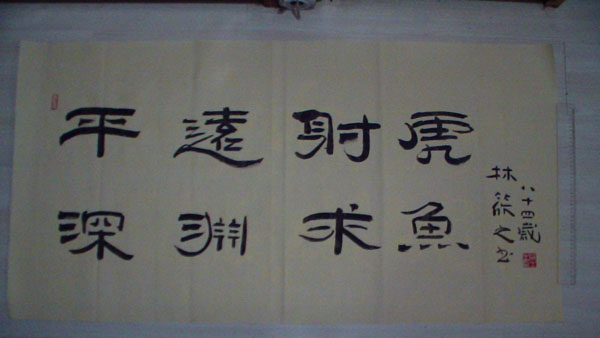 平遠射虎
深淵求魚
八十四歲
林筱之书